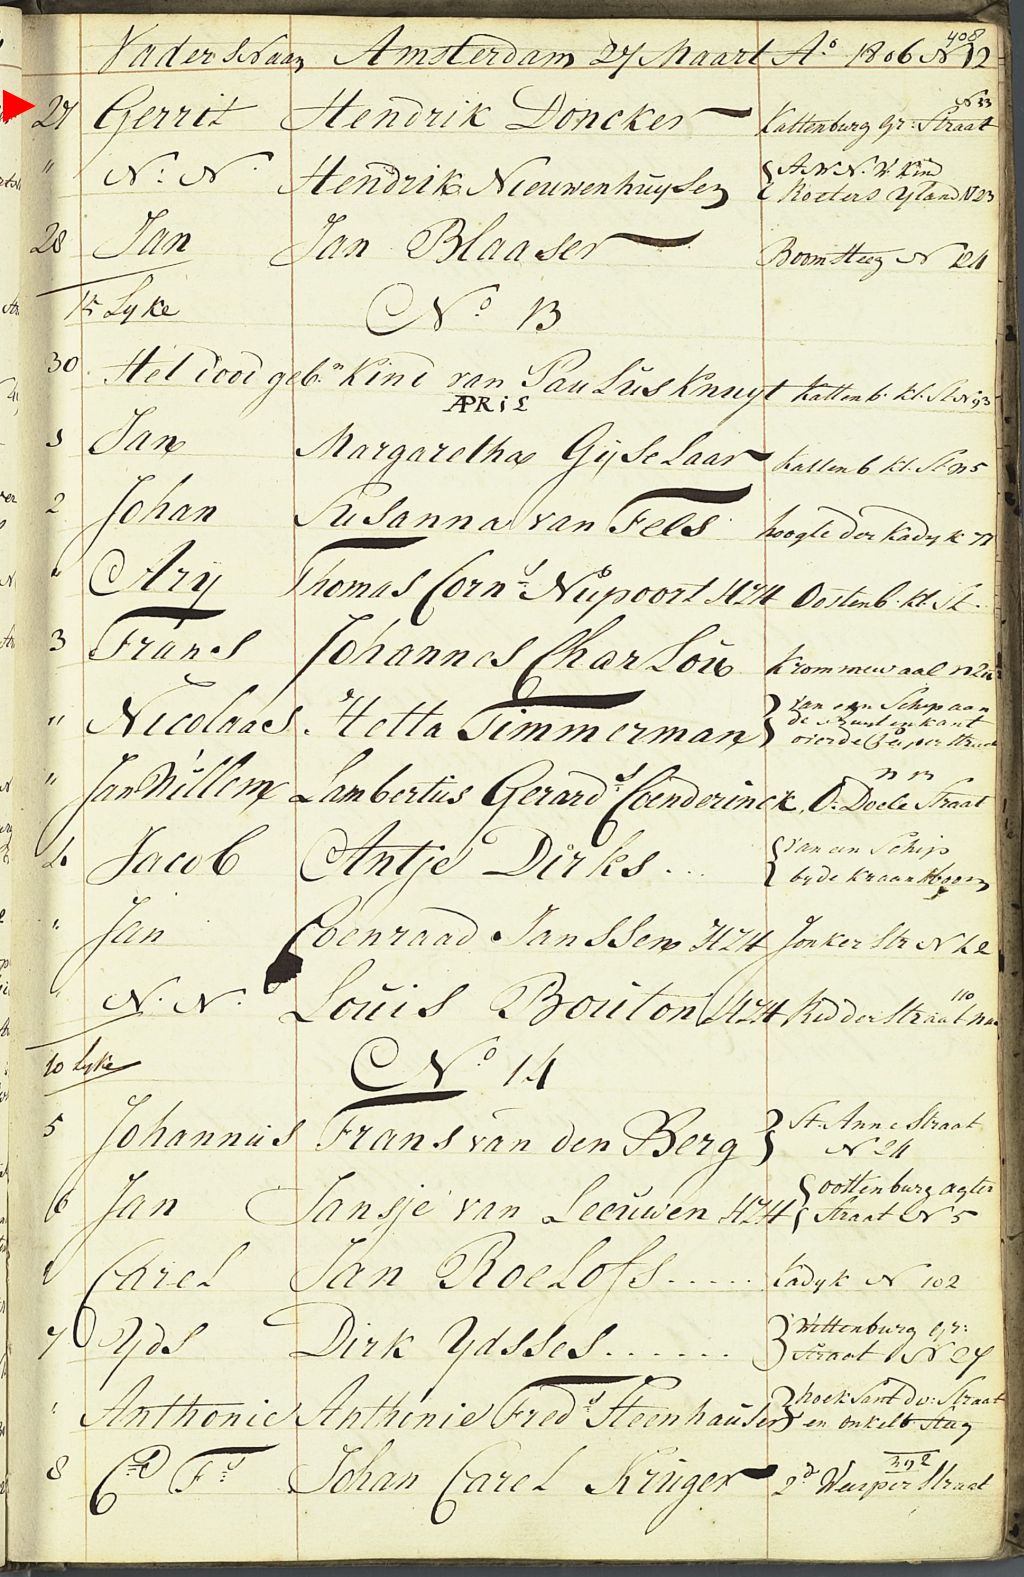 408
Vaders Naam Amsterdam 27 Maart Ao 1806 No 12
27 Gerrit Hendrik Doncker Kattenburg Gr: Straat N 33
" N: N: Hendrik Nieuwenhuysen Roeters Yland N 23
28 Jan Jan Blaaser Boomsteeg N 124
15 Lyke No 13
30 Het dood geb:n Kind van Paulus Knuyt Kattenb: kl: St N 93
APRiL
1 Jan Margaretha Gyselaar Kattenb kl: St n 5
2 Johan Susanna van Fels hoogte der Kadyk 77
" Ary Thomas Corns Nupoort H24 Oostenb: kl: St.
3 Frans Johannes Charlou Krommewaal
" Nicolaas Hetta Timmerman van een Schip aan
de Buytenkant
over de Pyperstraat
" Jan Willem Lambertus Gerards Coenderinck O: Doele Straat N 13
4 Jacob Antje Dirks... van een Schip
by de Kraansboom
" Jan Coenraad Janssen H24 Jonker Str N 42
" N: N: Louis Bouton H24 Ridderstraat 110
10 Lyke No 14
5 Johannus Frans van den Berg St. Anne Straat
N 24
6 Jan Jansje van Leeuwen H24 oostenburg agter
straat N 5
" Carel Jan Roelofs..... Kadyk N 102
7 Yds Dirk Ydsses...... Wittenburg Gr:
Straat N 27
" Anthonie Anthonie Fredk Steenhauser hoek Sant dw: Straat
en onkelb: steeg
8 Cd Fd Johan Carel Kruger 2d Weesper Straat 392